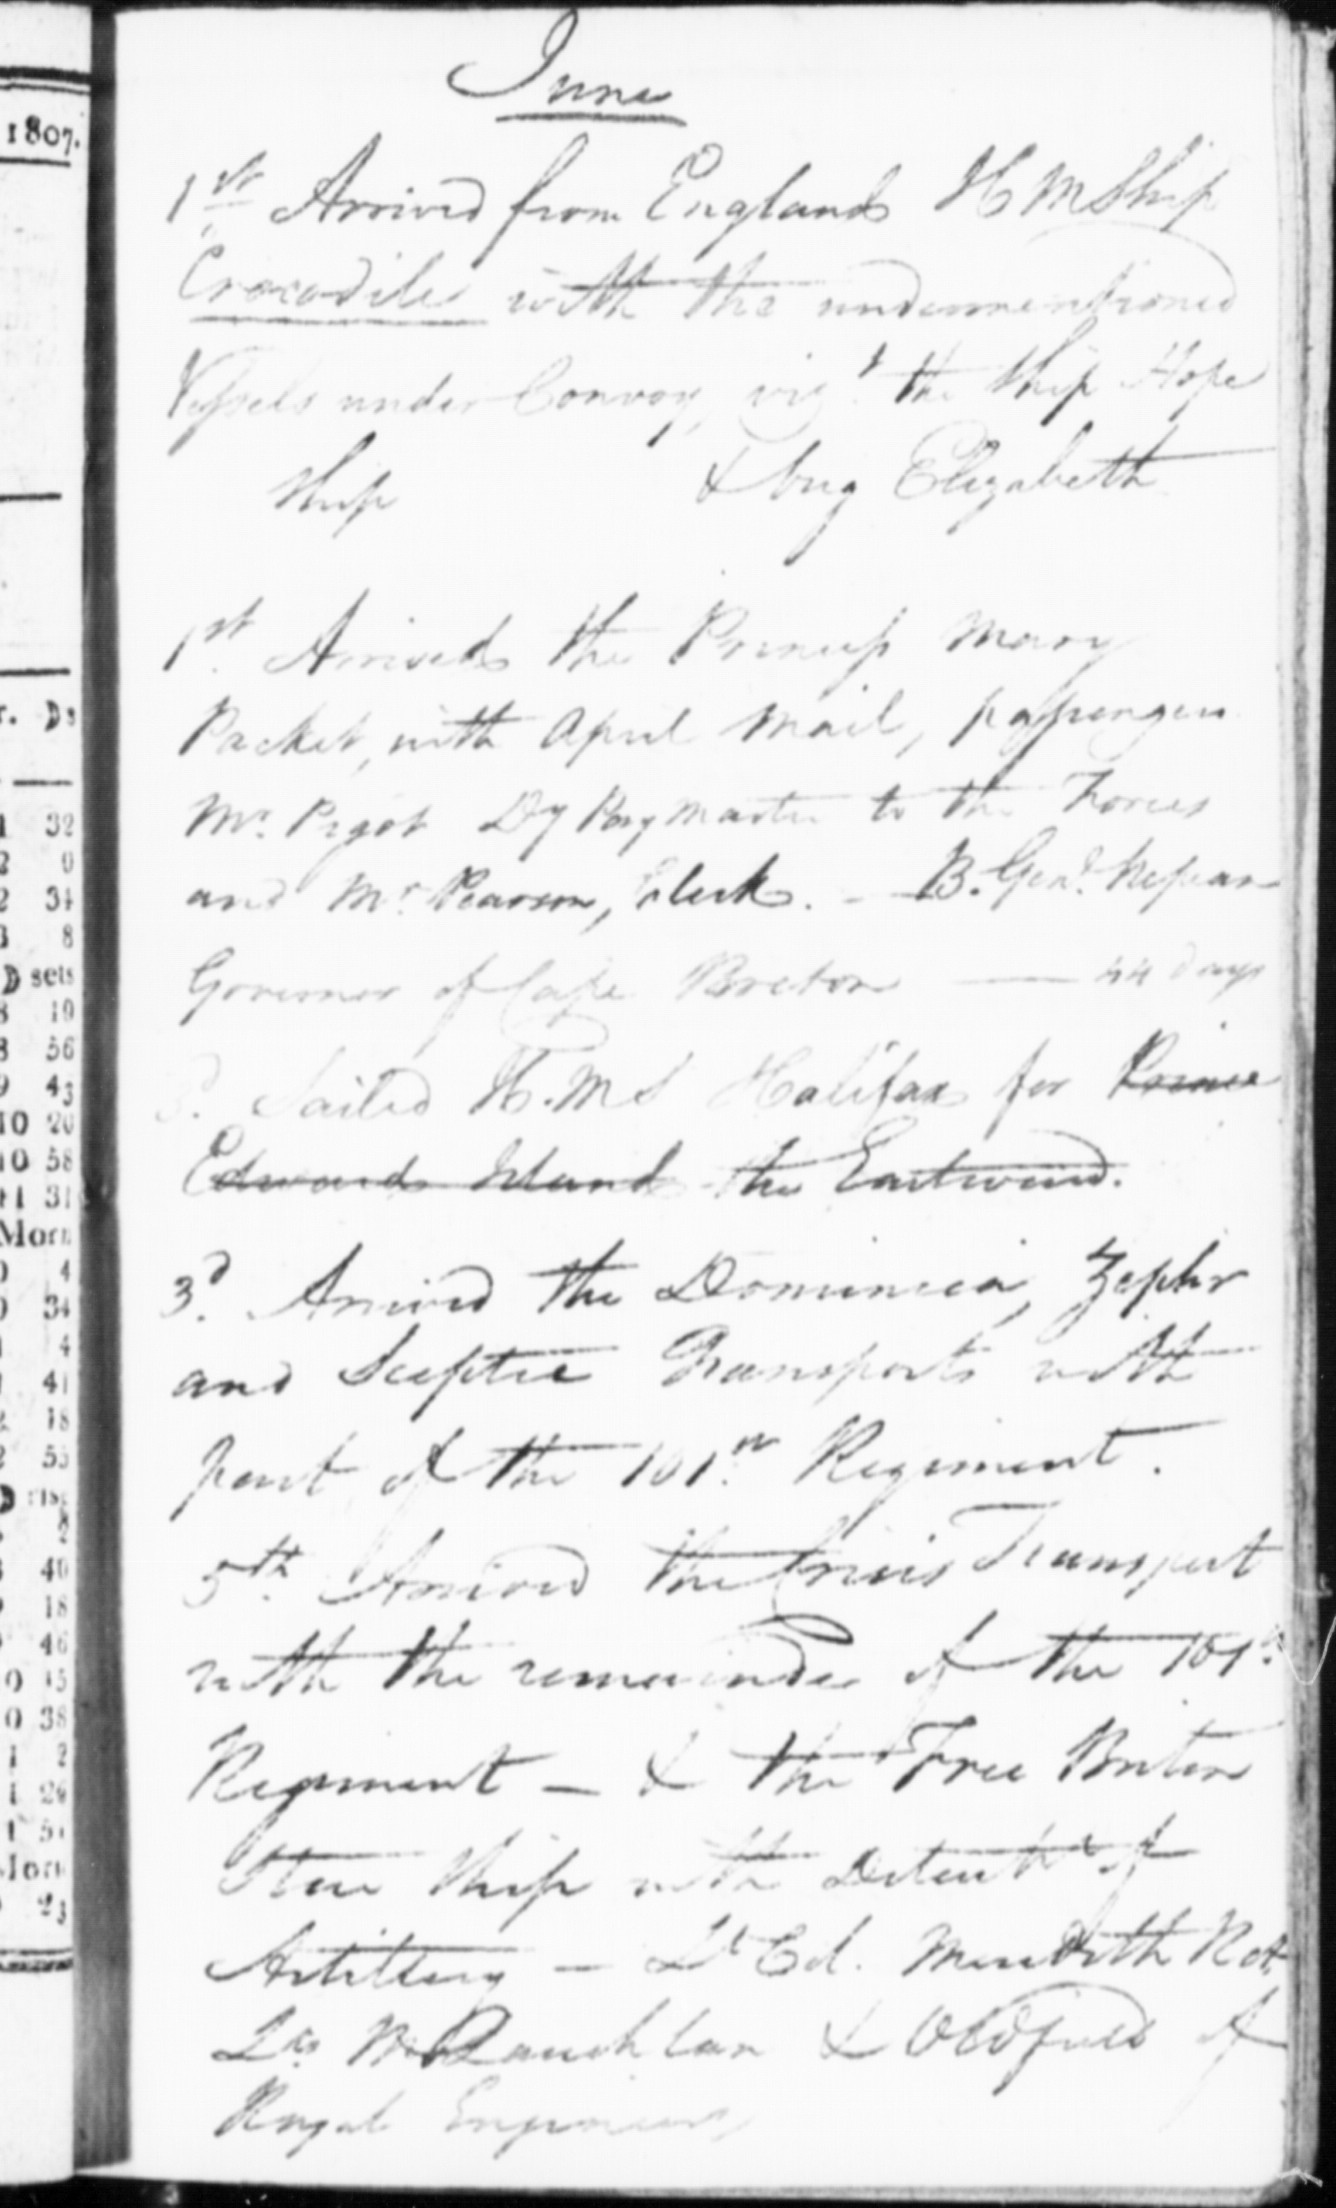 1807.
June
1st Arrived from England H M Ship
Crocodile with the undermentioned
Vessels under Convoy, viz.t the Ship Hope
Ship & brig Elizabeth
1st Arrived the Princess Mary
Packet, with April Mail, passengers
Mr. Pigot Dy PayMaster to the Forces
and Mr Pearson, Clerk. - B. Genl. Nepean
Governor of Cape Breton — 44 days
3d. Sailed H.M S Halifax for Prince
Edwards Island the Eastward.
3d. Arrived the Dominica, Zephr
and Sceptre Transports with
part of the 101st Regiment.
5th Arrived the Crisis Transport
with the remainder of the 101st
Regiment - & the Free Briton
Store Ship with Detacht of
Artillery - Lt Col. Meredith
Lts McLauchlan & Oldfield of
Royal Engineers
r. Ds
1 32
2 0
2 34
3 8
D sets
8 19
8 56
9 43
10 20
10 58
11 31
Morn
0 4
0 34
1 4
1 41
2 18
2 55
D rise
2
40
18
46
0 15
0 38
1 2
1 29
1 51
Morn
23